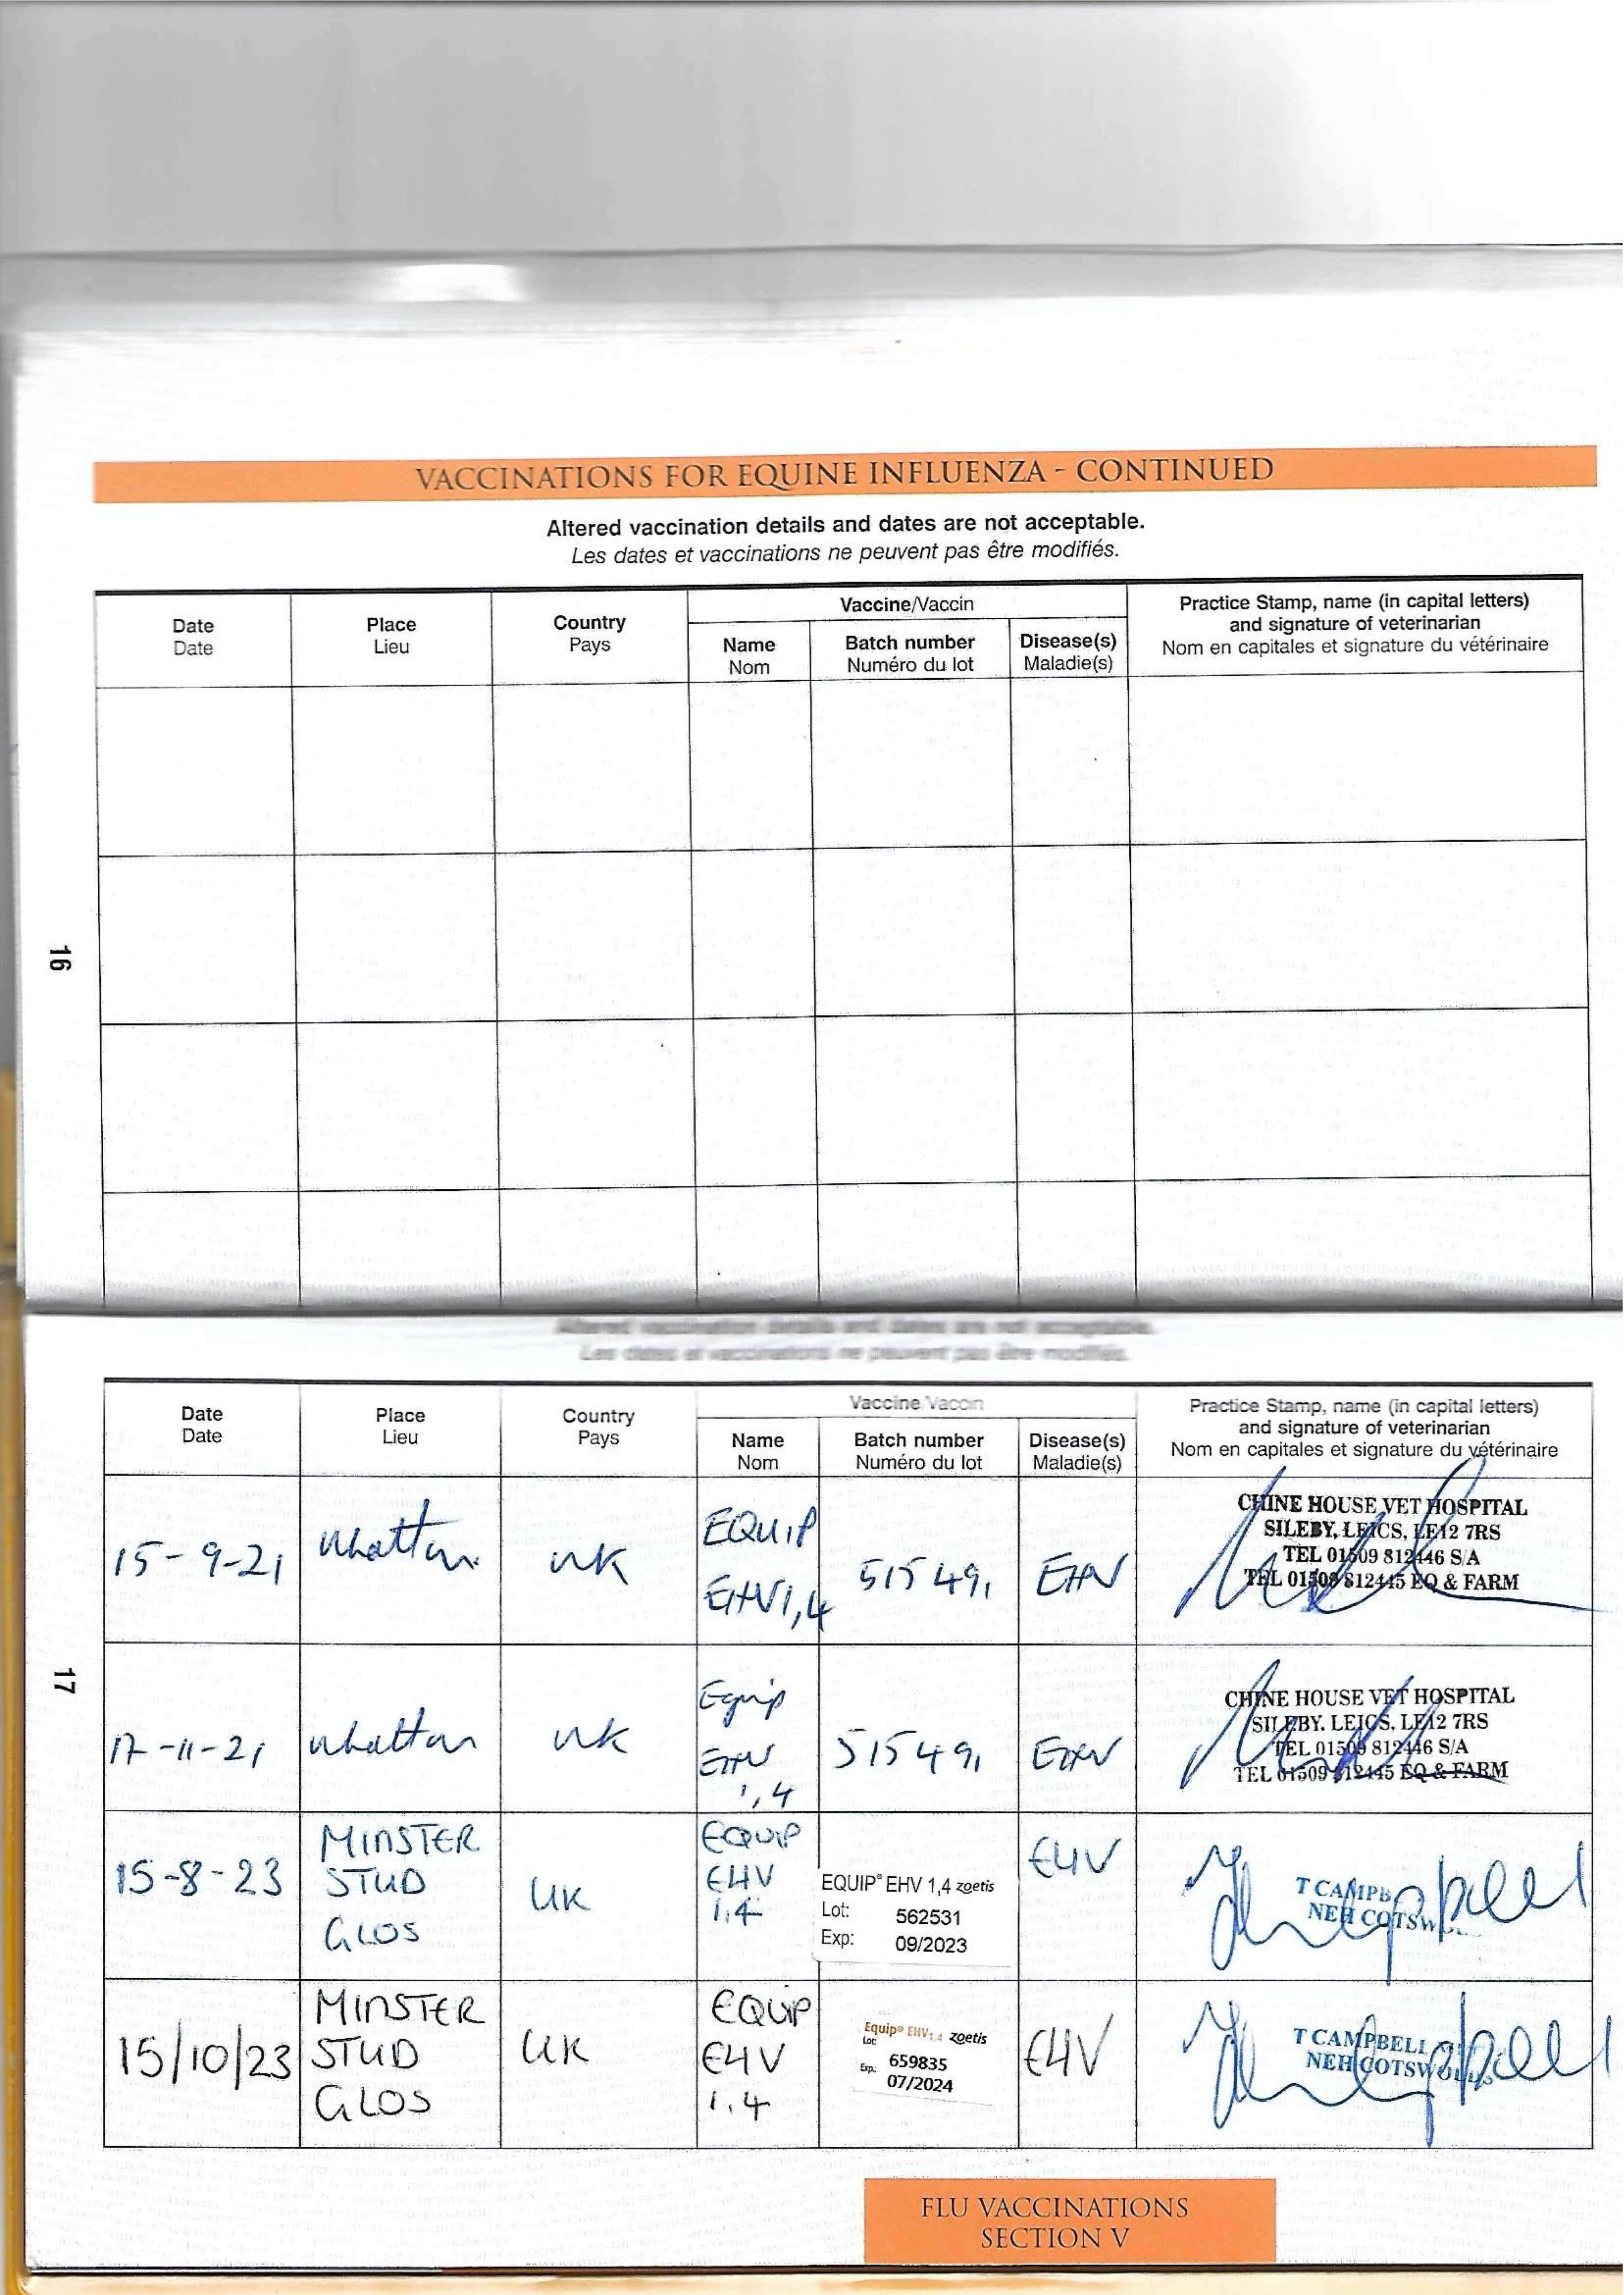 VACCINATIONS FOR EQUINE INFLUENZA - CONTINUED
Altered vaccination details and dates are not acceptable.
Les dates et vaccinations ne peuvent pas être modifiés.
Date
Date
Place
Lieu
Country
Pays
Vaccine/Vaccin
Name
Nom
Batch number
Numéro du lot
Disease(s)
Maladie(s)
Practice Stamp, name (in capital letters)
and signature of veterinarian
Nom en capitales et signature du vétérinaire
16
Altered vaccination details and dates are not acceptable.
Les dates et vaccinations ne peuvent pas être modifiés.
Date
Date
Place
Lieu
Country
Pays
Vaccine/Vaccin
Name
Nom
Batch number
Numéro du lot
Disease(s)
Maladie(s)
Practice Stamp, name (in capital letters)
and signature of veterinarian
Nom en capitales et signature du vétérinaire
15-9-21
Whatton
UK
EQUIP
EHV1,4
515491
EHV
CHINE HOUSE VET HOSPITAL
SILEBY, LEICS, LE12 7RS
TEL 01509 812446 S/A
TEL 01509 812445 EQ & FARM
17
17-11-21
Whatton
UK
Equip
EHV
1,4
515491
EHV
CHINE HOUSE VET HOSPITAL
SILEBY. LEICS. LE12 7RS
TEL 01509 812446 S/A
TEL 01509 812445 EQ & FARM
15-8-23
MINSTER
STUD
GLOS
UK
EQUIP
EHV
1,4
EQUIP® EHV 1,4 zoetis
Lot: 562531
Exp: 09/2023
EHV
T CAMPB
NEH COTSW
15/10/23
MINSTER
STUD
GLOS
UK
EQUIP
EHV
1,4
Equip® EHV1,4 zoetis
Lot:
659835
Exp: 07/2024
EHV
T CAMPBELL
NEH COTSWOLDS
FLU VACCINATIONS
SECTION V